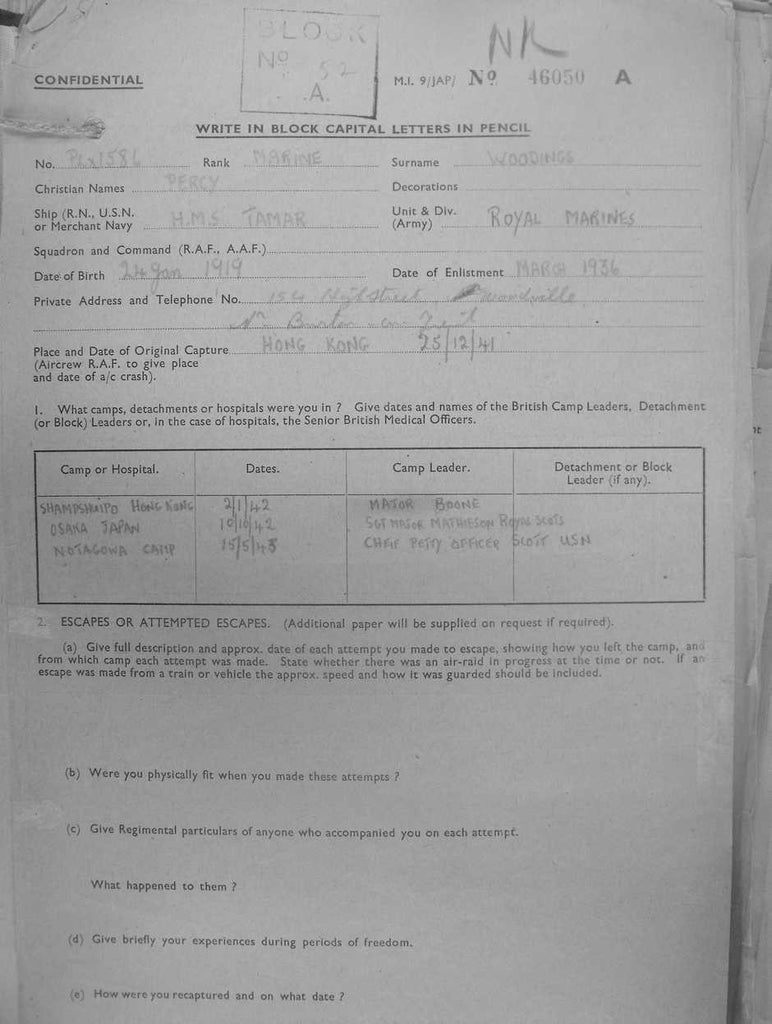 BLOCK
Nº 52
A.
NR
CONFIDENTIAL
M.I. 9/JAP/ Nº 46050 A
WRITE IN BLOCK CAPITAL LETTERS IN PENCIL
No. PLX1586 Rank MARINE Surname WOODINGS
Christian Names PERCY Decorations
Ship (R.N., U.S.N. or Merchant Navy H.M.S TAMAR Unit & Div. (Army) ROYAL MARINES
Squadron and Command (R.A.F., A.A.F.)
Date of Birth 24 Jan 1919 Date of Enlistment MARCH 1936
Private Address and Telephone No. 154 High Street Woodville
Nr Burton on Trent
Place and Date of Original Capture HONG KONG 25/12/41
(Aircrew R.A.F. to give place
and date of a/c crash).
1. What camps, detachments or hospitals were you in ? Give dates and names of the British Camp Leaders, Detachment
(or Block) Leaders or, in the case of hospitals, the Senior British Medical Officers.
Camp or Hospital. Dates. Camp Leader. Detachment or Block Leader (if any).
SHAMPSHUIPO HONG KONG 2/1/42 MAJOR BOONE
OSAKA JAPAN 10/10/42 SGT MAJOR MATHIESON ROYAL SCOTS
NOTAGOWA CAMP 15/5/45 CHEIF PETTY OFFICER SCOTT USN
2. ESCAPES OR ATTEMPTED ESCAPES. (Additional paper will be supplied on request if required).
(a) Give full description and approx. date of each attempt you made to escape, showing how you left the camp, and
from which camp each attempt was made. State whether there was an air-raid in progress at the time or not. If an
escape was made from a train or vehicle the approx. speed and how it was guarded should be included.
(b) Were you physically fit when you made these attempts ?
(c) Give Regimental particulars of anyone who accompanied you on each attempt.
What happened to them ?
(d) Give briefly your experiences during periods of freedom.
(e) How were you recaptured and on what date ?